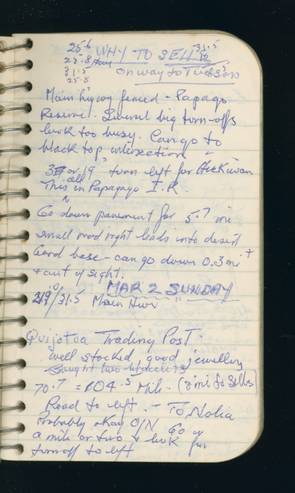 WHY TO SELLS
on way to Tucson
Main highway fenced - Papago
Reserve. Several big turn-offs
look too busy. Can go to
black top intersection -
turn left for
This is all Papago I.R.
Go down pavement for 5.7 mi
small road right leads into desert
Good base - can go down 0.3 mi +
out of sight.
MAR 2 SUNDAY
Main Hwy
Quijotoa Trading Post.
well stocked, good jewellery
Bought two
70.7 = 104.5 Mile. (8 mi to Sells)
Road to left. - To Nolia
Probably okay O/N Go
a mile or two & look for
turnoff to left